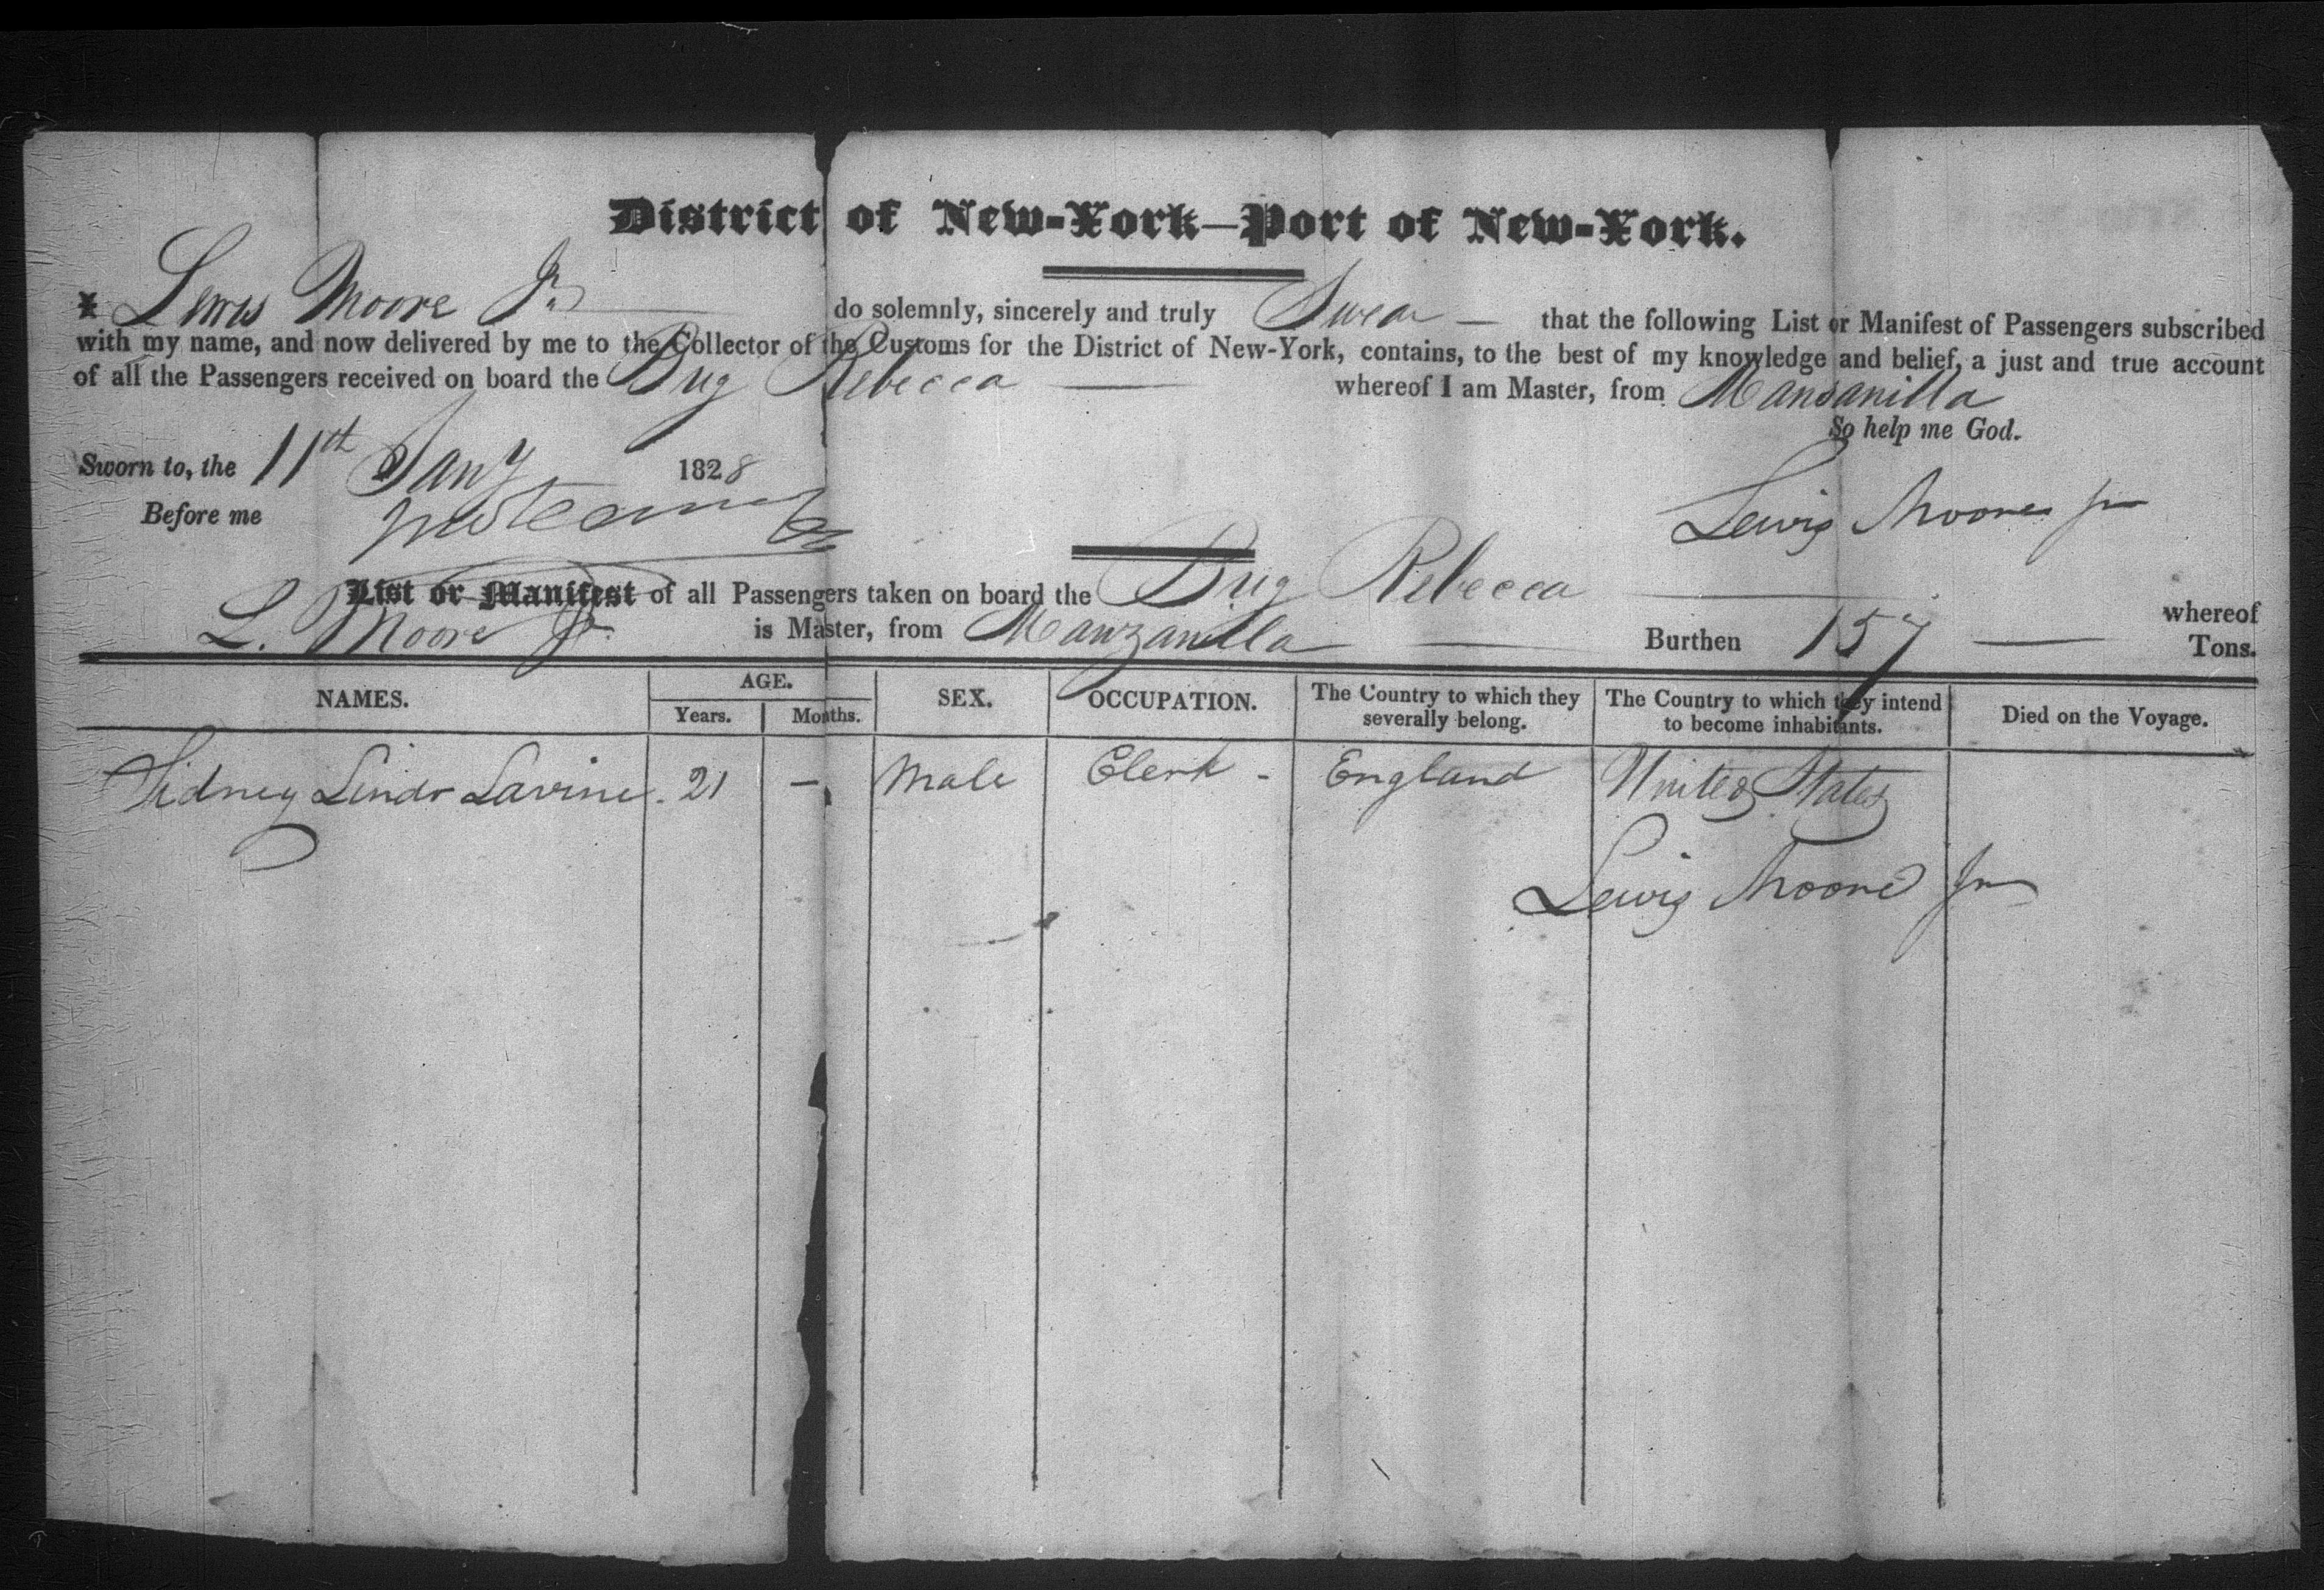 District of New-York—Port of New-York.
I Lewis Moore Jr. do solemnly, sincerely and truly Swear — that the following List or Manifest of Passengers subscribed
with my name, and now delivered by me to the Collector of the Customs for the District of New-York, contains, to the best of my knowledge and belief, a just and true account
of all the Passengers received on board the Brig Rebecca — whereof I am Master, from Mansanilla
So help me God.
Sworn to, the 11th Jany 1828
Before me
Lewis Moore Jr
List or Manifest of all Passengers taken on board the Brig Rebecca — whereof
L. Moore Jr. is Master, from Manzanilla — Burthen 157 — Tons.
NAMES. AGE. Years. Months. SEX. OCCUPATION. The Country to which they severally belong. The Country to which they intend to become inhabitants. Died on the Voyage.
Sidney Lindo Lavine. 21 — Male Clerk - England United States
Lewis Moore Jr